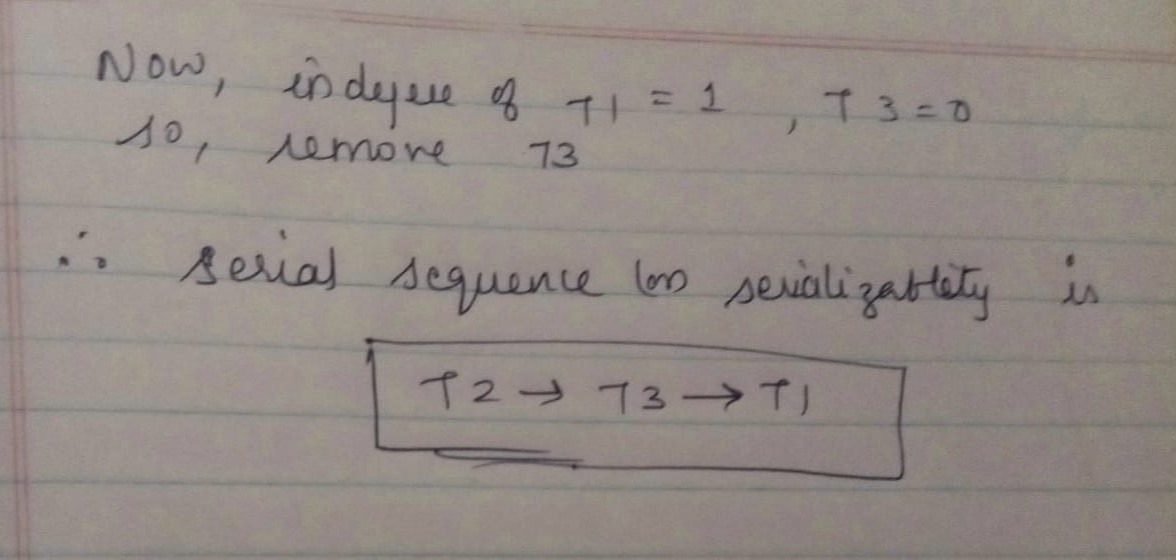 Now, indegree of T1 = 1 , T3 = 0
so, remove T3
∴ serial sequence (or) serializablity is
T2 → T3 → T1